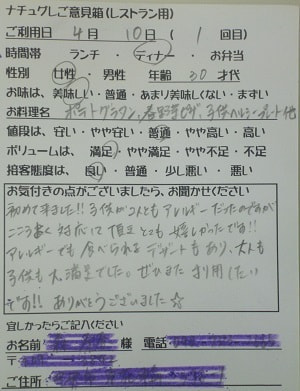 ナチュグしご意見箱(レストラン用)
ご利用日 4月 10日( 1 回目)
時間帯 ランチ・ディナー・お弁当
性別 女性・男性 年齢 30 才代
お味は、美味しい・普通・あまり美味しくない・まずい
お料理名 ポテトグラタン、春野菜ピザ、子供ヘルシープレート他
値段は、安い・やや安い・普通・やや高い・高い
ボリュームは、満足・やや満足・やや不足・不足
接客態度は、良い・普通・少し悪い・悪い
お気付きの点がございましたら、お聞かせください
初めて来ました!!子供が2人ともアレルギーだったのですが
こころ良く対応いて頂きとても嬉しかったです!!
アレルギーでも食べられるデザートもあり、大人も
子供も大満足でした。ぜひまた利用したい
です!!ありがとうございました☆
宜しかったらご記入ください
お名前 様 電話
〒
ご住所